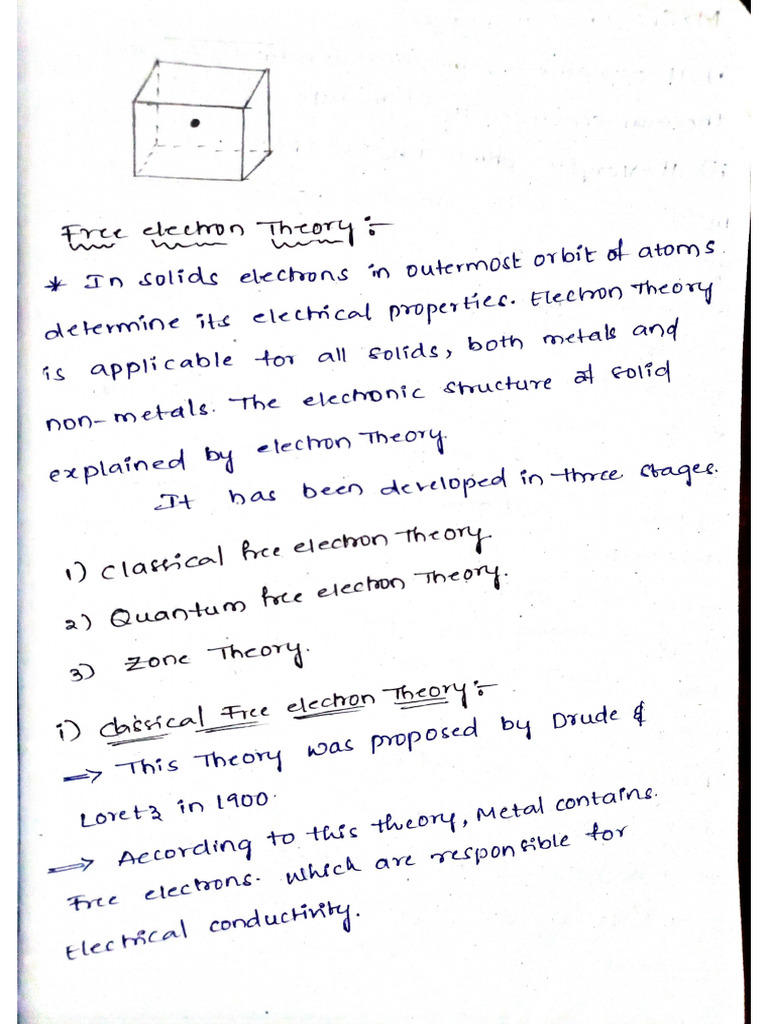 Free electron Theory :-
* In solids electrons in outermost orbit of atoms
determine its electrical properties. Electron Theory
is applicable for all solids, both metals and
non-metals. The electronic structure of solid
explained by electron Theory.
It has been developed in three stages.
1) Classical free electron Theory.
2) Quantum free electron Theory.
3) Zone Theory.
i) Classical Free electron Theory :-
⇒ This Theory was proposed by Drude &
Loretz in 1900.
⇒ According to this theory, Metal contains.
Free electrons. which are responsible for
Electrical conductivity.